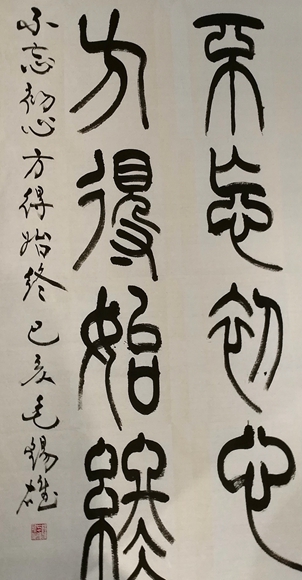 不忘初心
方得始终
不忘初心方得始终己亥毛锡雄